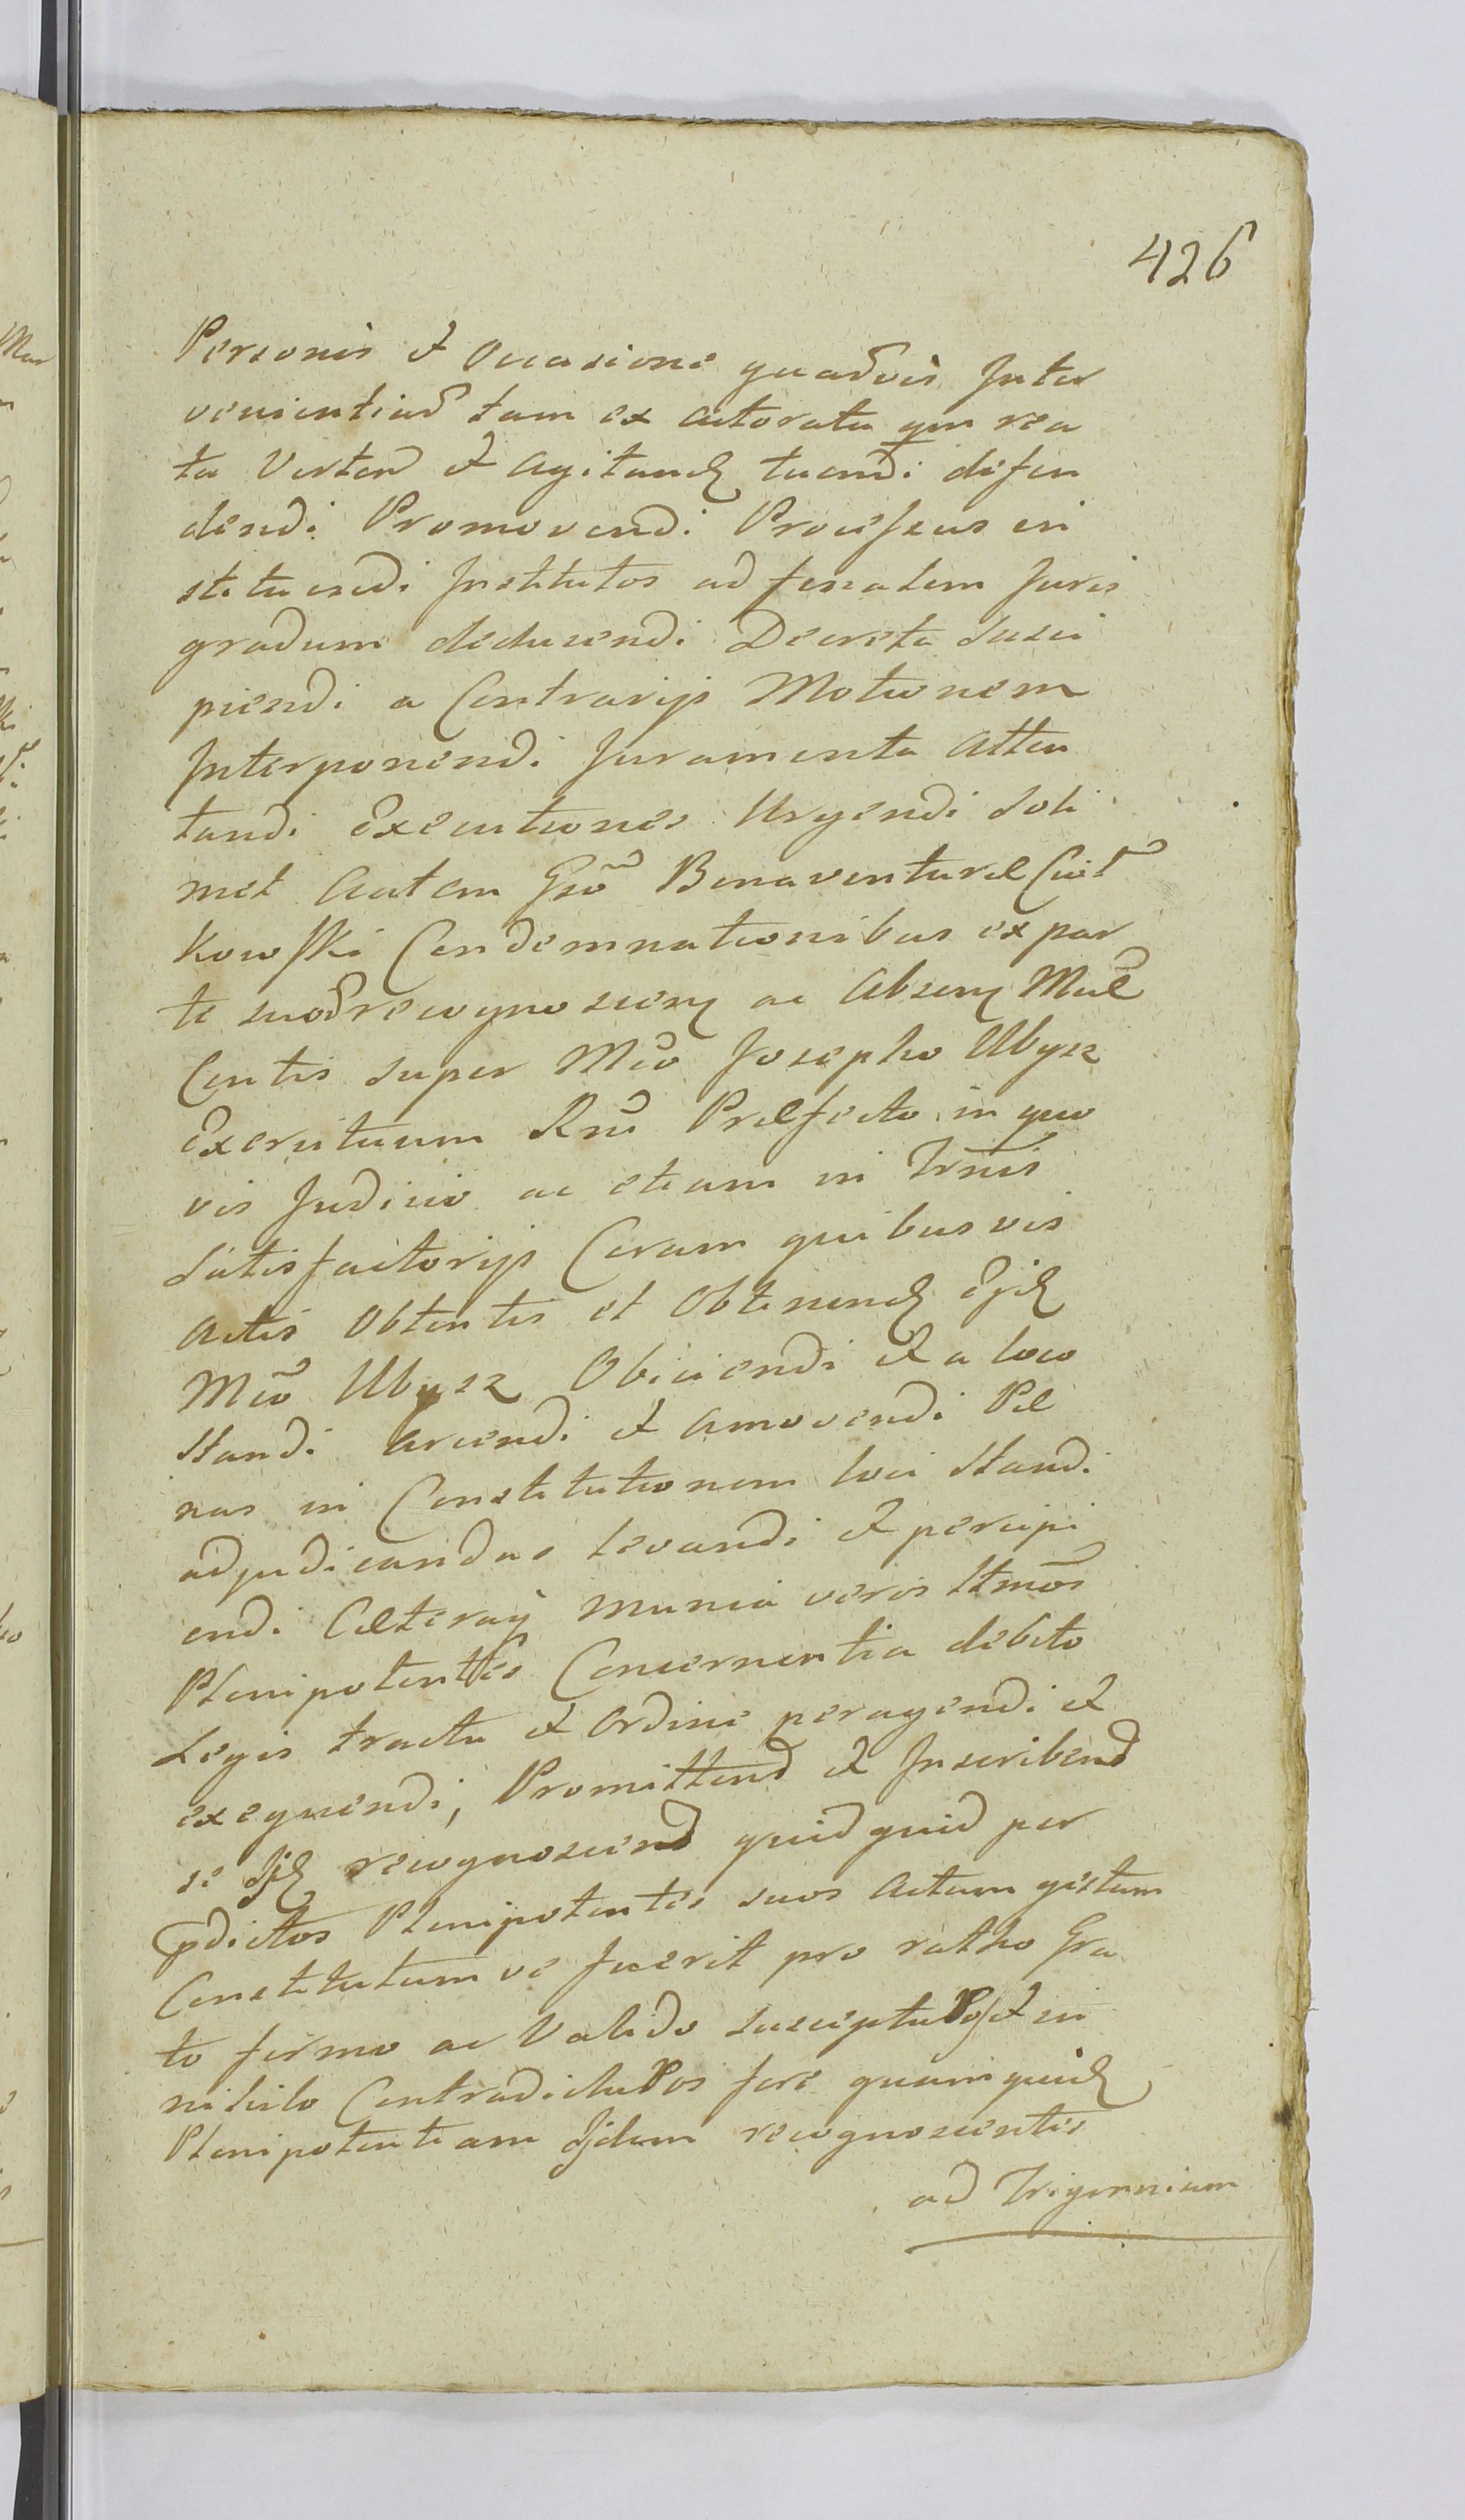 426
Personis et Occasione quadvis Inter
venientiud tam ex actoratu qm rea
tu Verten et agitand tuendi defen
dendi Promovendi Processus in
stituendi Institutos ad finalem Juris
gradum deducendi Decreta susci
piendi a Contrarijs Motionem
Interponendi Juramenta atten
tandi Executiones Urgendi Soli
met autem Gso Bonaventuræ Ciet
kowski Condemnationibus ex par
te suod recognoscien ac absen Mul
Centis super Mco Josepho Ubysz
Exercituum Rni Præfecto in quo
vis Judicio ac etiam in Trmis
Satisfactorijs Coram quibusvis
actis Obtentis et Obtinend Ejd
Mco Ubysz Obiiciendi et a loco
standi arcendi et amovendi Pæ
nas in Constitutionem loci standi
adjudicandas levandi et percipi
endi Cæteraq munia veros ttmos
Plenipotentes Concernentia debito
Legis tractu et Ordine peragendi et
exequendi, Promitten et Inscriben
se Ijd recognoscen quidquid per
pdictos Plenipotentes suos actum gestum
Constitutum ve fuerit pro ratho Gra
to firmo ac Valido suscepturos et in
nihilo Contradicturos fore quamquid
Plenipotentiam Ijdem recognoscentes
ad Trigennium